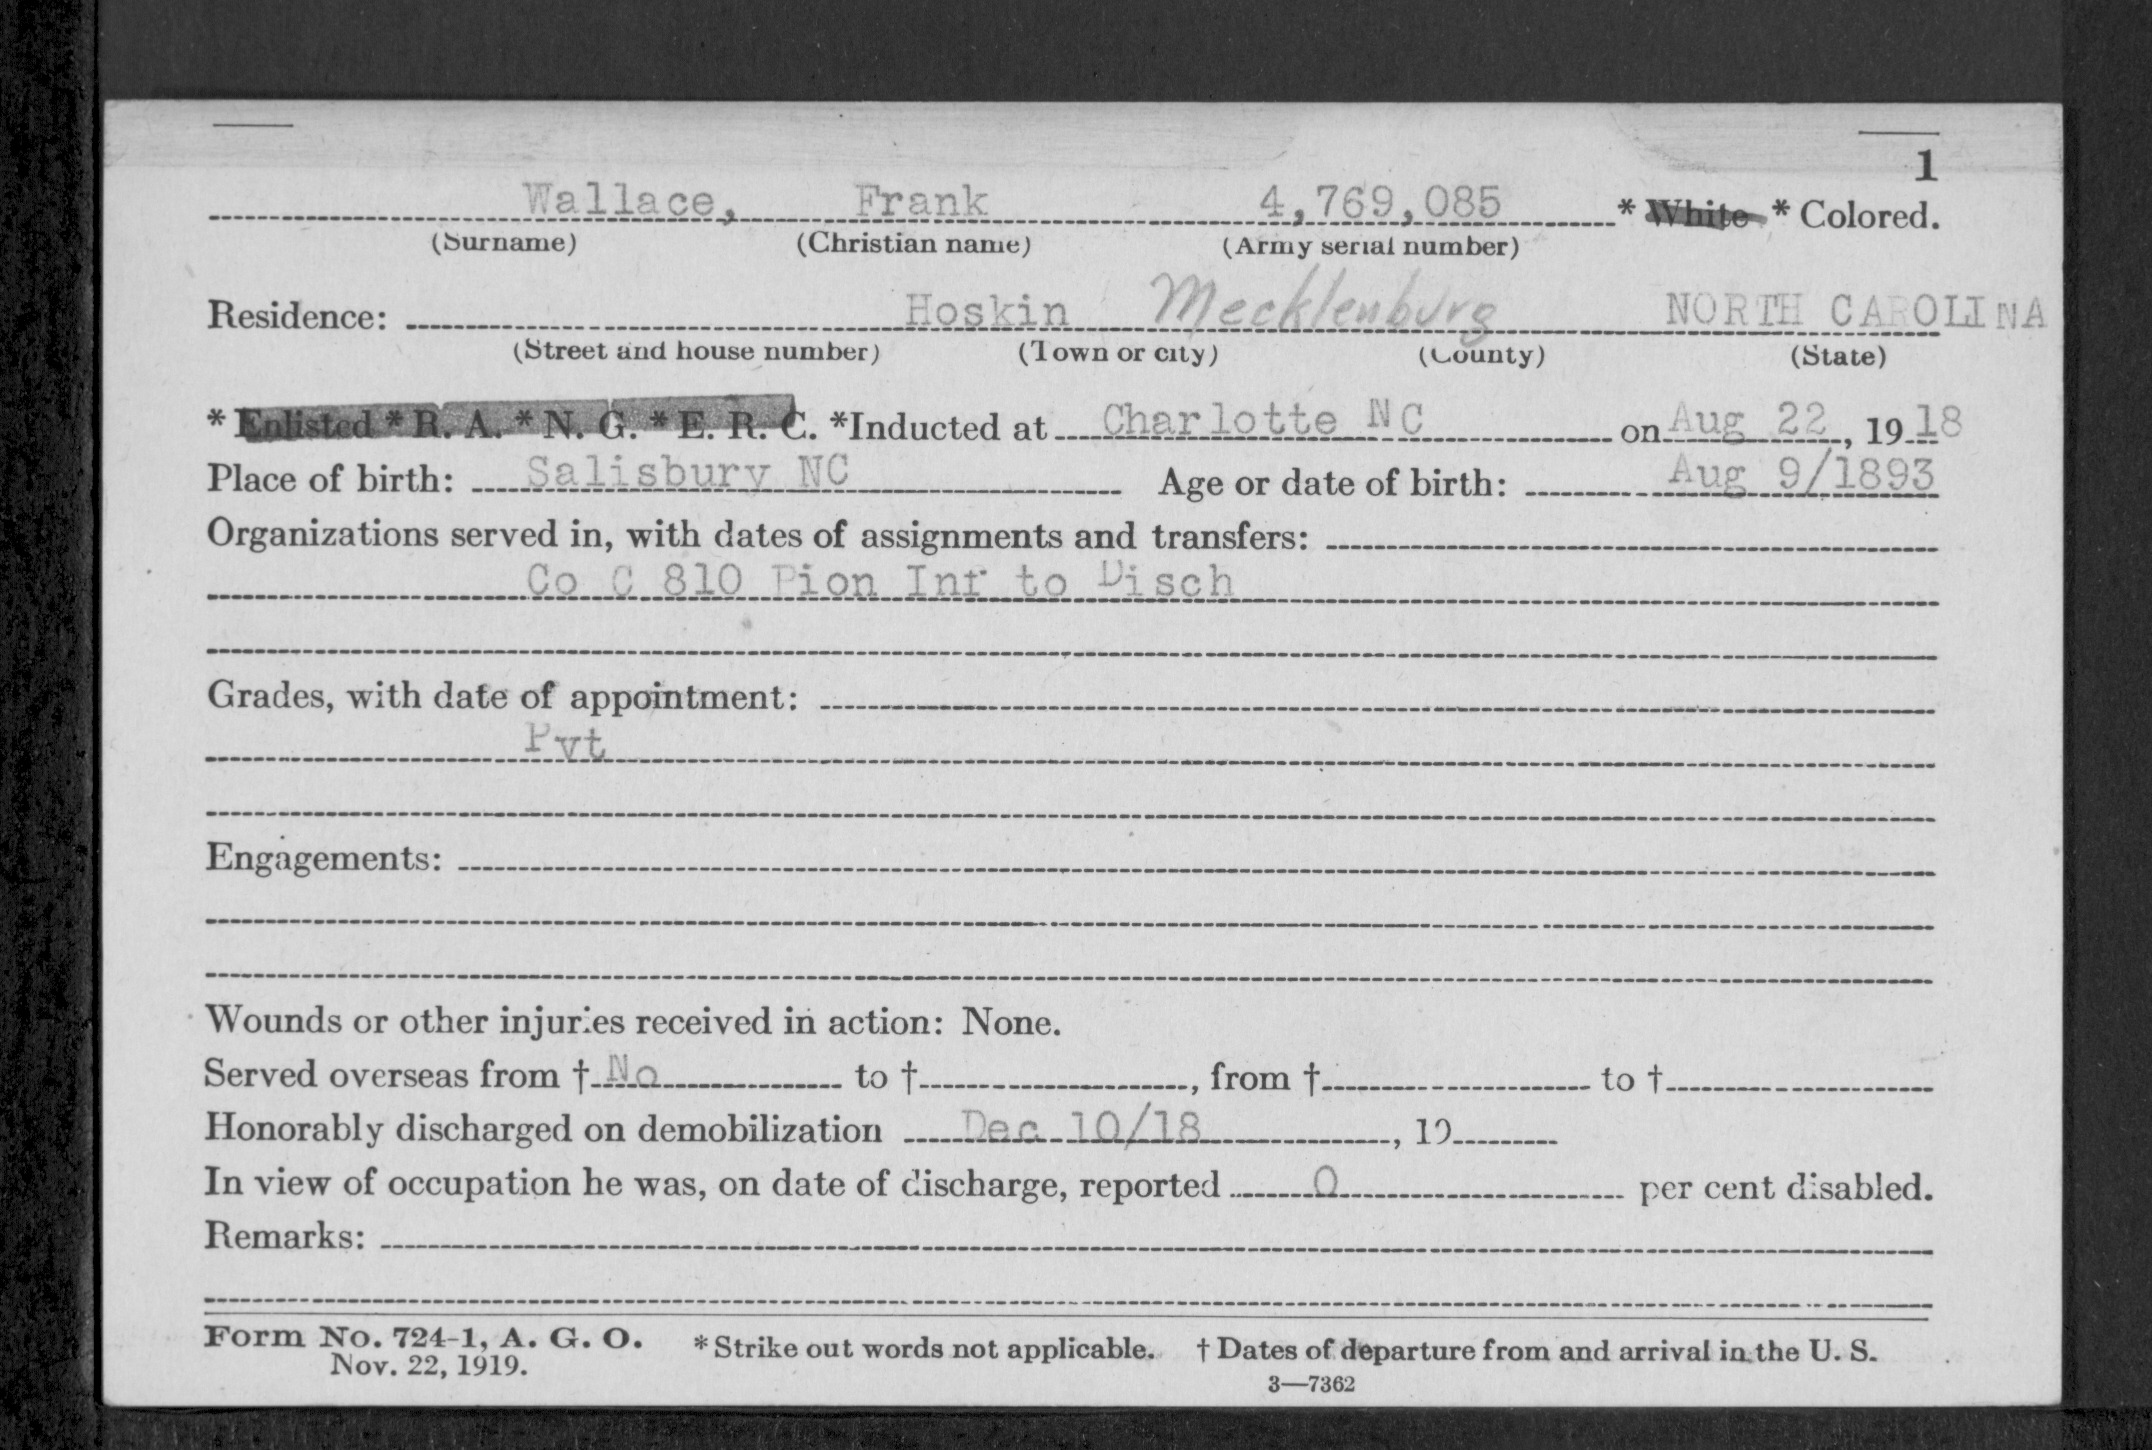 1
Wallace, Frank 4,769,085 * White * Colored.
(Surname) (Christian name) (Army serial number)
Residence: Hoskin Mecklenburg NORTH CAROLINA
(Street and house number) (Town or city) (County) (State)
* Enlisted * R. A. * N. G. * E. R. C. *Inducted at Charlotte NC on Aug 22, 1918
Place of birth: Salisbury NC Age or date of birth: Aug 9/1893
Organizations served in, with dates of assignments and transfers:
Co C 810 Pion Inf to Disch
Grades, with date of appointment:
Pvt
Engagements:
Wounds or other injuries received in action: None.
Served overseas from † No to †, from † to †
Honorably discharged on demobilization Dec 10/18, 19
In view of occupation he was, on date of discharge, reported 0 per cent disabled.
Remarks:
Form No. 724-1, A. G. O. * Strike out words not applicable. † Dates of departure from and arrival in the U. S.
Nov. 22, 1919.
3—7362